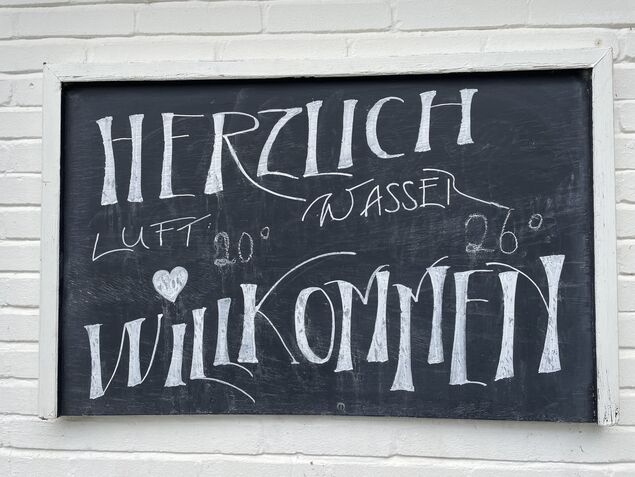 HERZLICH
LUFT 20° WASSER 26°
WILLKOMMEN